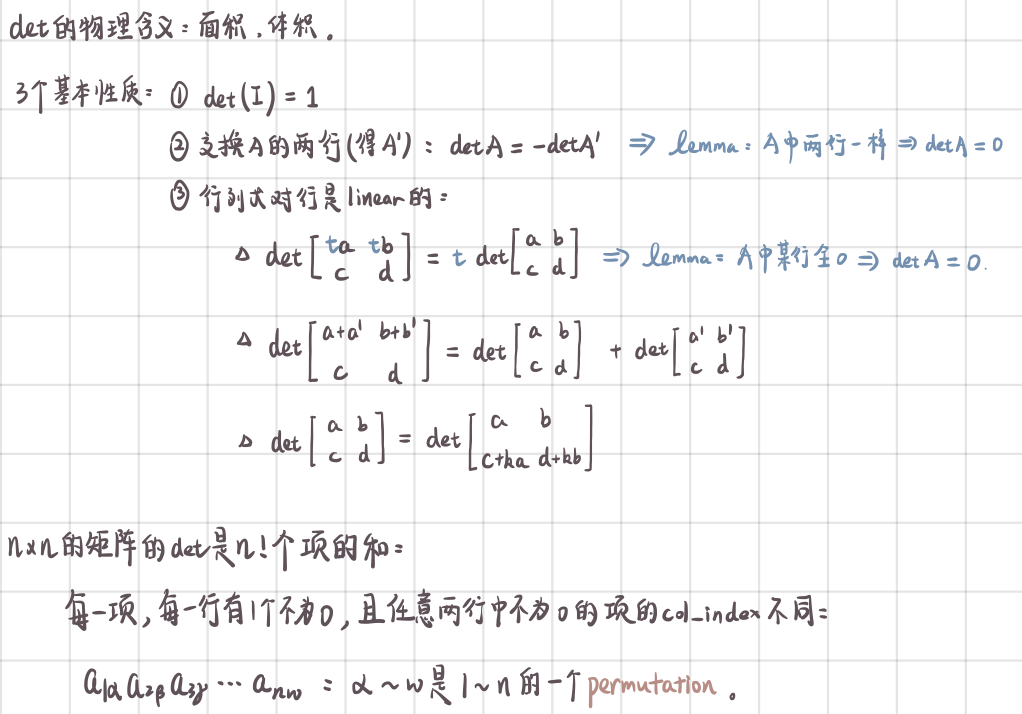 det的物理含义：面积，体积。
3个基本性质：① det(I) = 1
② 交换A的两行(得A')：detA = -detA' ⇒ lemma：A中两行一样 ⇒ detA = 0
③ 行列式对行是linear的：
△ det[ta tb; c d] = t det[a b; c d] ⇒ lemma：A中某行全0 ⇒ detA = 0.
△ det[a+a' b+b'; c d] = det[a b; c d] + det[a' b'; c d]
△ det[a b; c d] = det[a b; c+ka d+kb]
n×n的矩阵的det是n!个项的和：
每一项，每一行有1个不为0，且任意两行中不为0的项的col_index不同：
a₁α a₂β a₃γ ⋯ aₙω：α～ω是1～n的一个permutation。